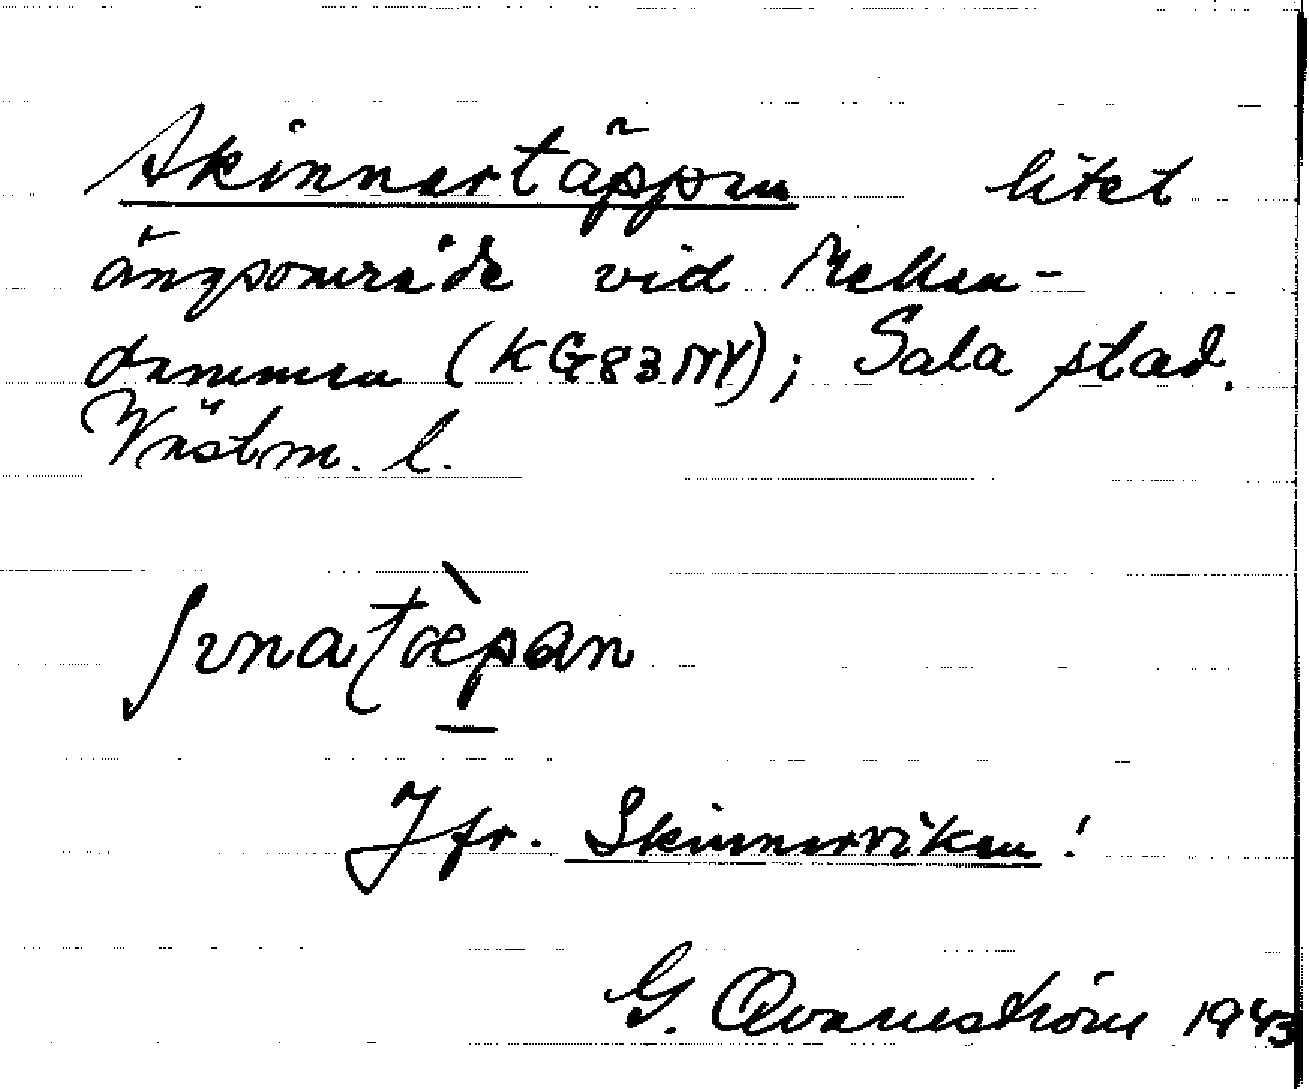 Skinnartäppan litet
ängsområde vid Mellan-
dammen (KG83NV); Sala stad.
Västm. l.
ʃɩnaʈæ̀pan
Jfr. Skinnarviken!
G. Qvarnström 1943